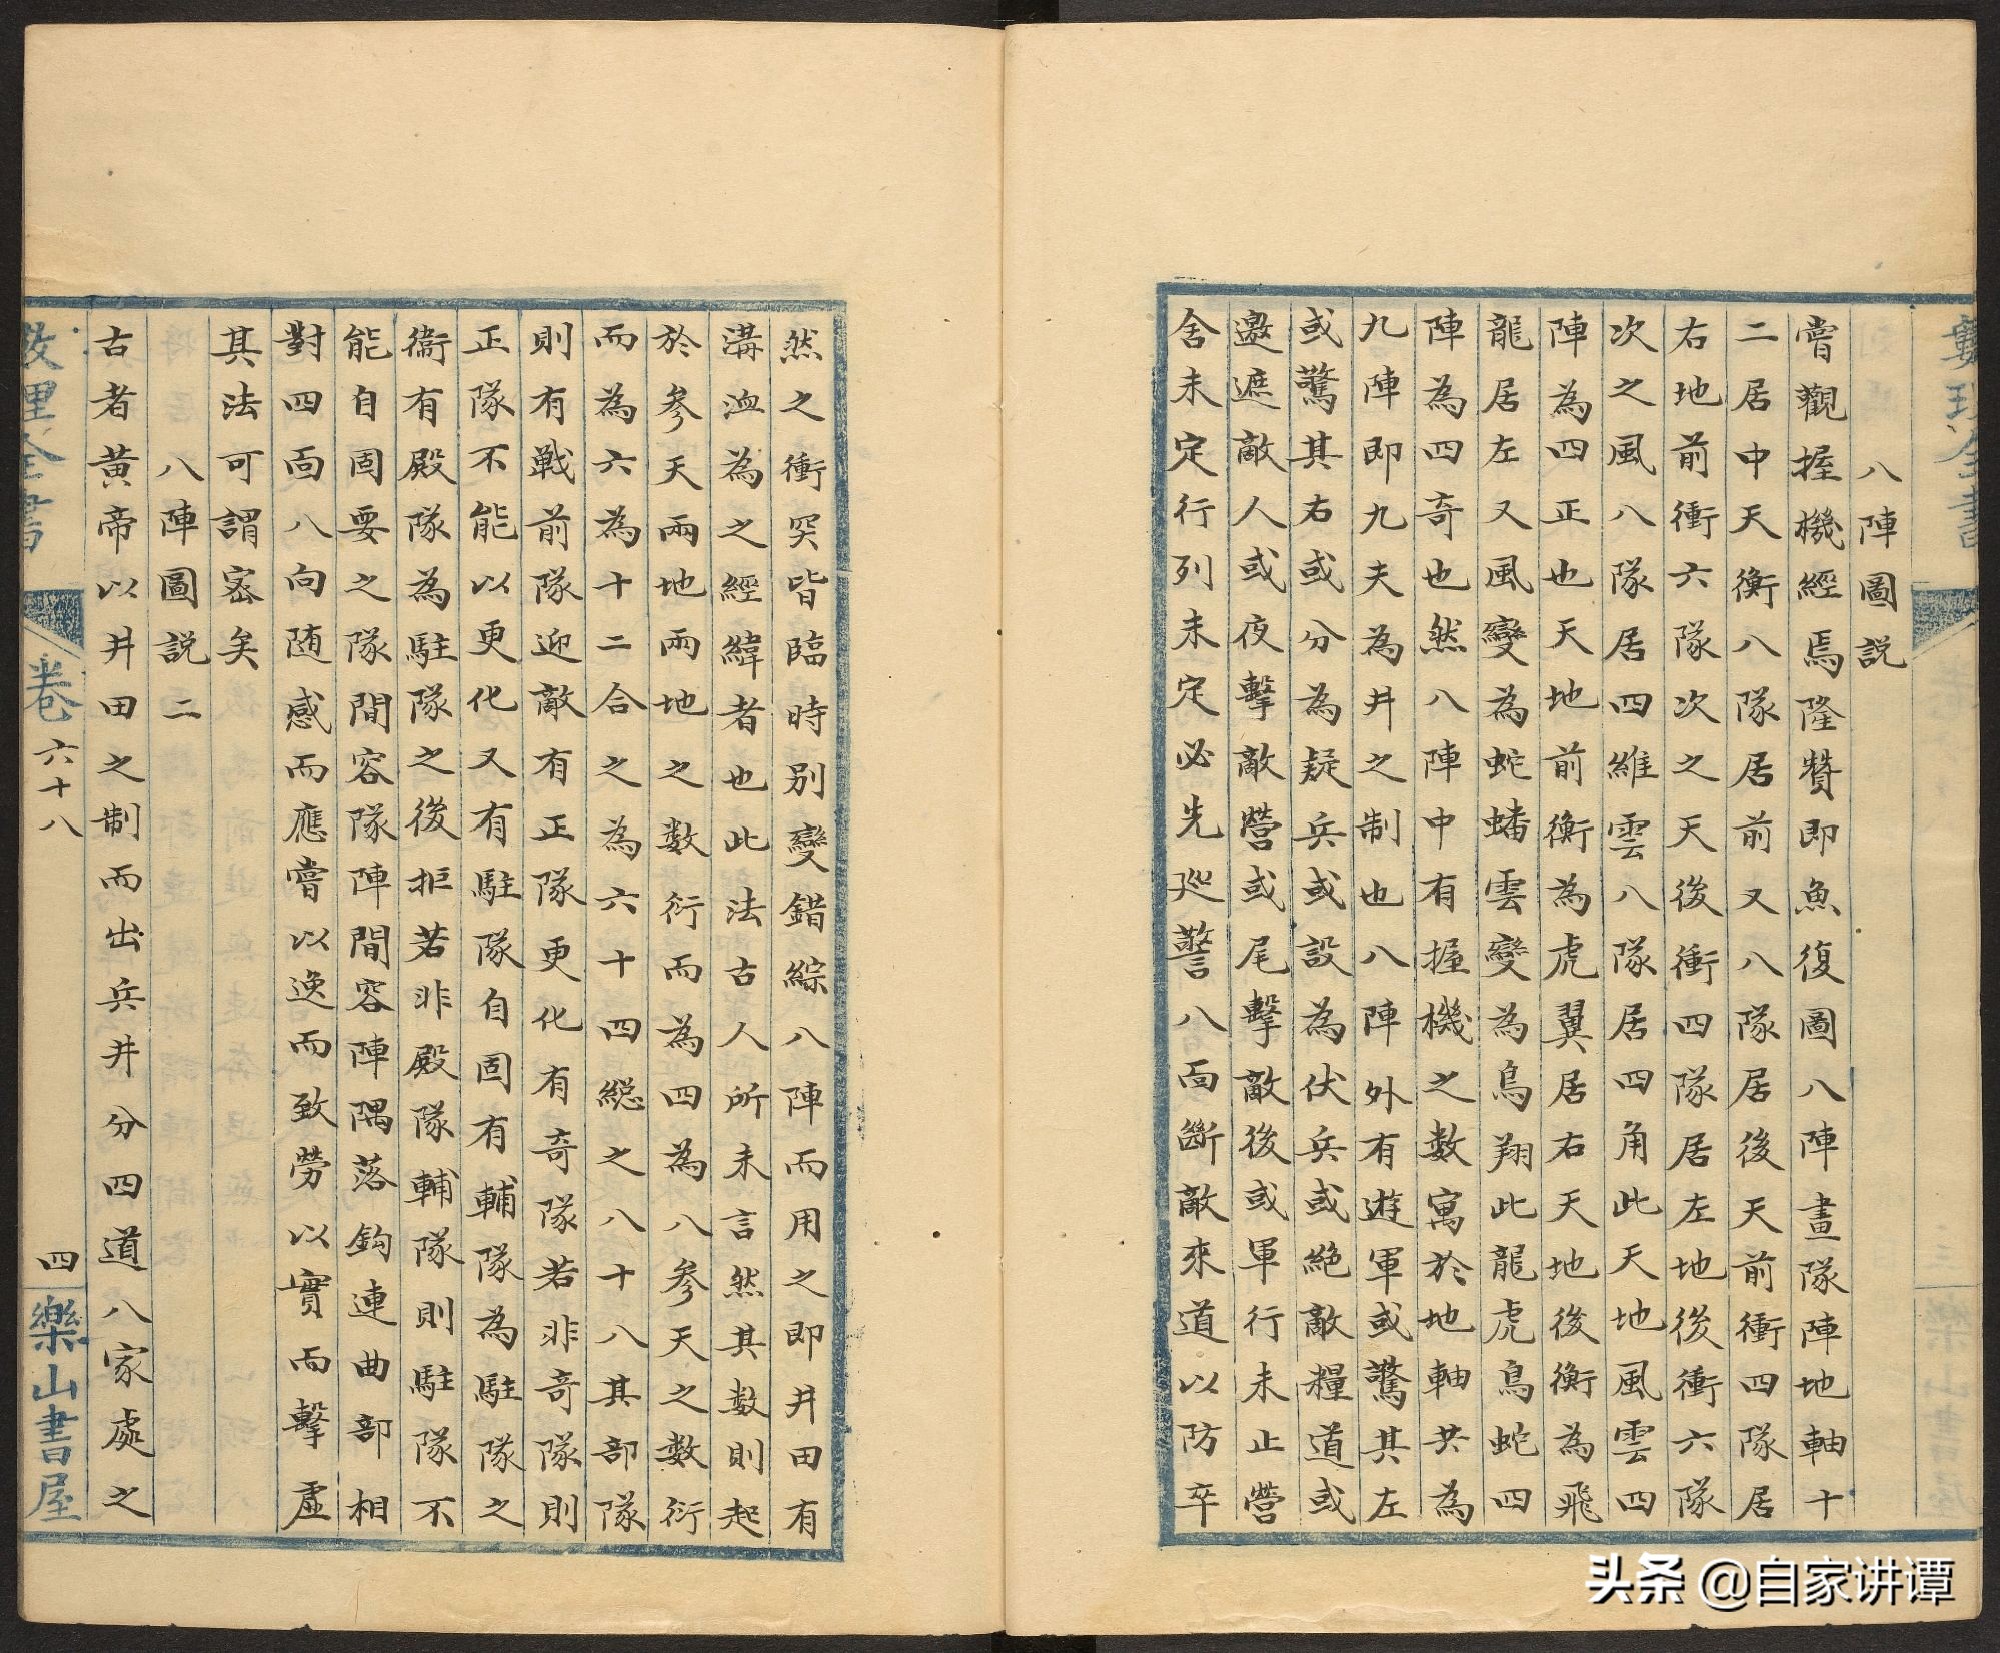 八陣圖説
嘗觀握機經焉隆贊即魚復圖八陣畫隊陣地軸十
二居中天衡八隊居前又八隊居後天前衝四隊居
右地前衝六隊次之天後衝四隊居左地後衝六隊
次之風八隊居四維雲八隊居四角此天地風雲四
陣為四正也天地前衡為虎翼居右天地後衡為飛
龍居左又風變為蛇蟠雲變為鳥翔此龍虎鳥蛇四
陣為四奇也然八陣中有握機之數寓於地軸共為
九陣即九夫為井之制也八陣外有遊軍或驚其左
或驚其右或分為疑兵或設為伏兵或絶敵糧道或
邀遮敵人或夜擊敵營或尾擊敵後或軍行未止營
舍未定行列未定必先廵警八面斷敵來道以防卒
然之衝突皆臨時别變錯綜八陣而用之即井田有
溝洫為之經緯者也此法古人所未言然其数則起
於參天兩地兩地之數衍而為四為八參天之數衍
而為六為十二合之為六十四縂之八十八其部隊
則有戰前隊迎敵有正隊更化有奇隊若非奇隊則
正隊不能以更化又有駐隊自固有輔隊為駐隊之
衛有殿隊為駐隊之後拒若非殿隊輔隊則駐隊不
能自固要之隊間容隊陣間容陣隅落鈎連曲部相
對四面八向随感而應嘗以逸而致勞以實而擊虛
其法可謂密矣
八陣圖説二
古者黃帝以井田之制而出兵井分四道八家處之
數理全書
卷六十八
四
樂山書屋
头条 @自家讲谭